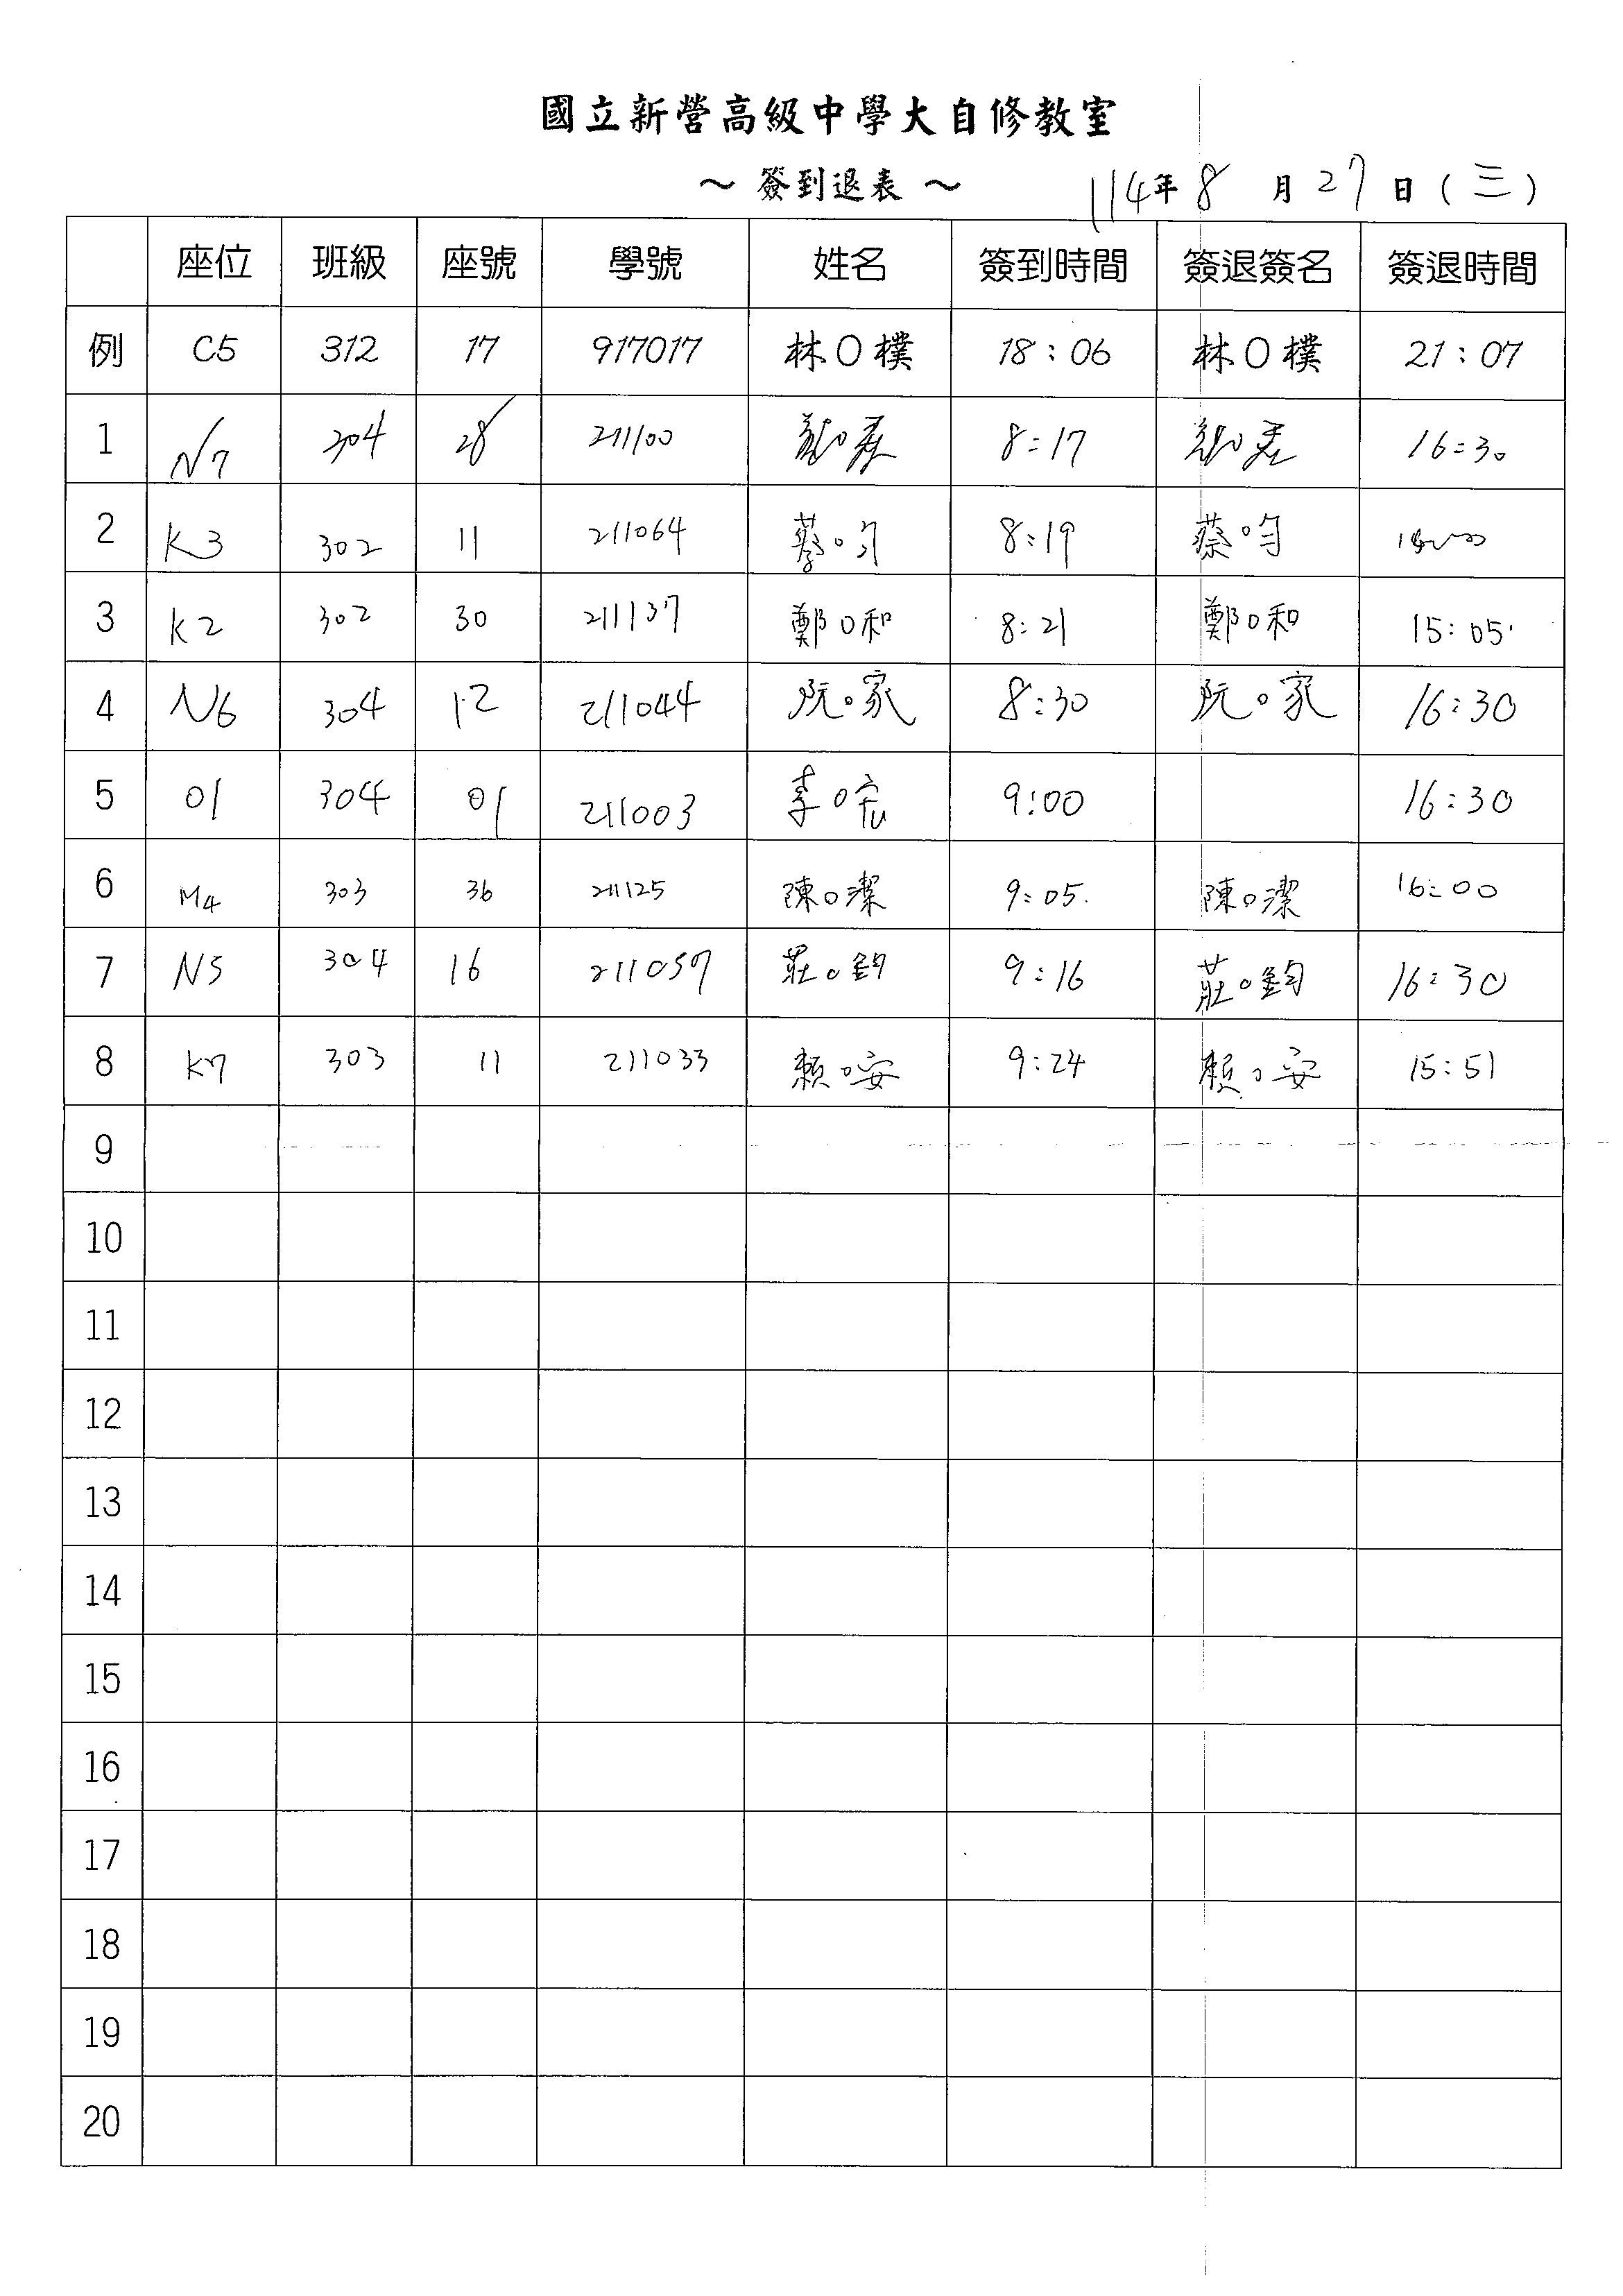 國立新營高級中學大自修教室
~ 簽到退表 ~ 114年 8 月 27 日 (三)
座位 班級 座號 學號 姓名 簽到時間 簽退簽名 簽退時間
例 C5 312 17 917017 林O樸 18:06 林O樸 21:07
1 N7 304 28 211100 8:17 16:30
2 K3 302 11 211064 蔡O勻 8:19 蔡O勻
3 K2 302 30 211137 鄭O和 8:21 鄭O和 15:05
4 N6 304 12 211044 阮O家 8:30 阮O家 16:30
5 O1 304 01 211003 李O宏 9:00 16:30
6 M4 303 36 211125 陳O潔 9:05 陳O潔 16:00
7 N5 304 16 211057 莊O鈞 9:16 莊O鈞 16:30
8 K7 303 11 211033 賴O安 9:24 賴O安 15:51
9
10
11
12
13
14
15
16
17
18
19
20